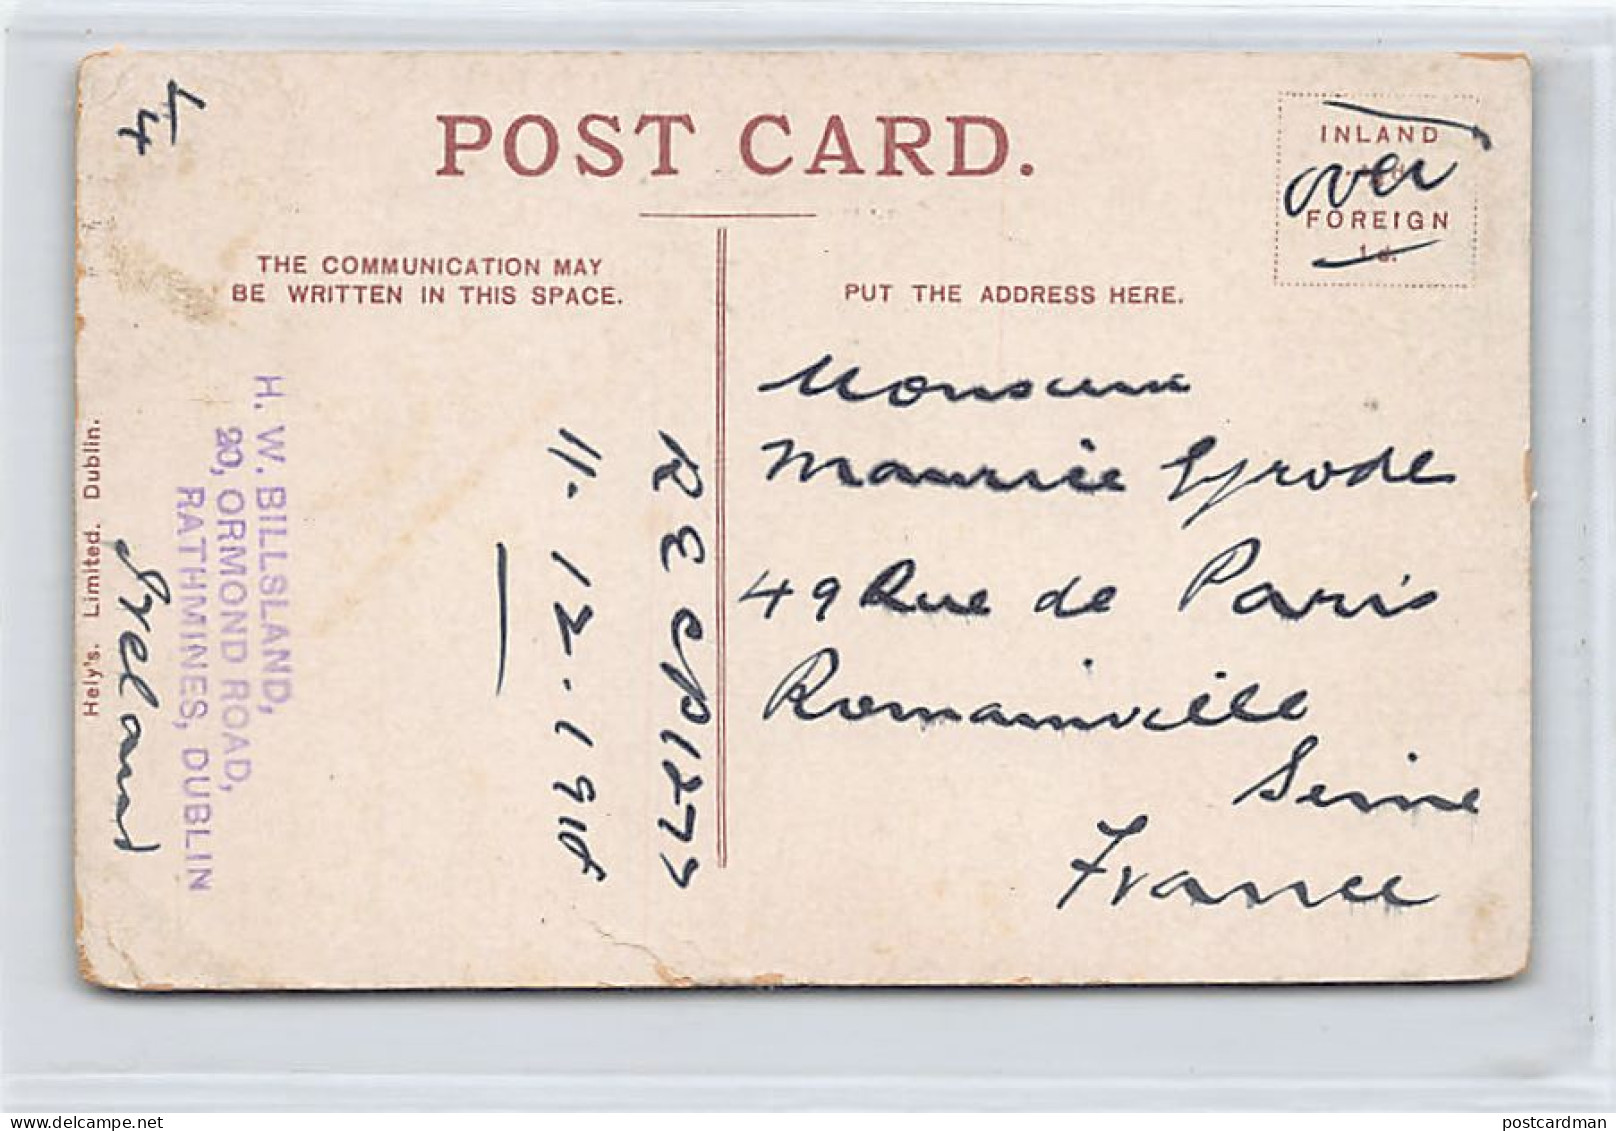 POST CARD.
INLAND
over
FOREIGN
1d.
THE COMMUNICATION MAY
BE WRITTEN IN THIS SPACE.
PUT THE ADDRESS HERE.
Monsieur
Maurice
49 Rue de Paris
Romainville
Seine
France
H. W. BILLSLAND,
20, ORMOND ROAD,
RATHMINES, DUBLIN
Hely's. Limited. Dublin.
postcardman